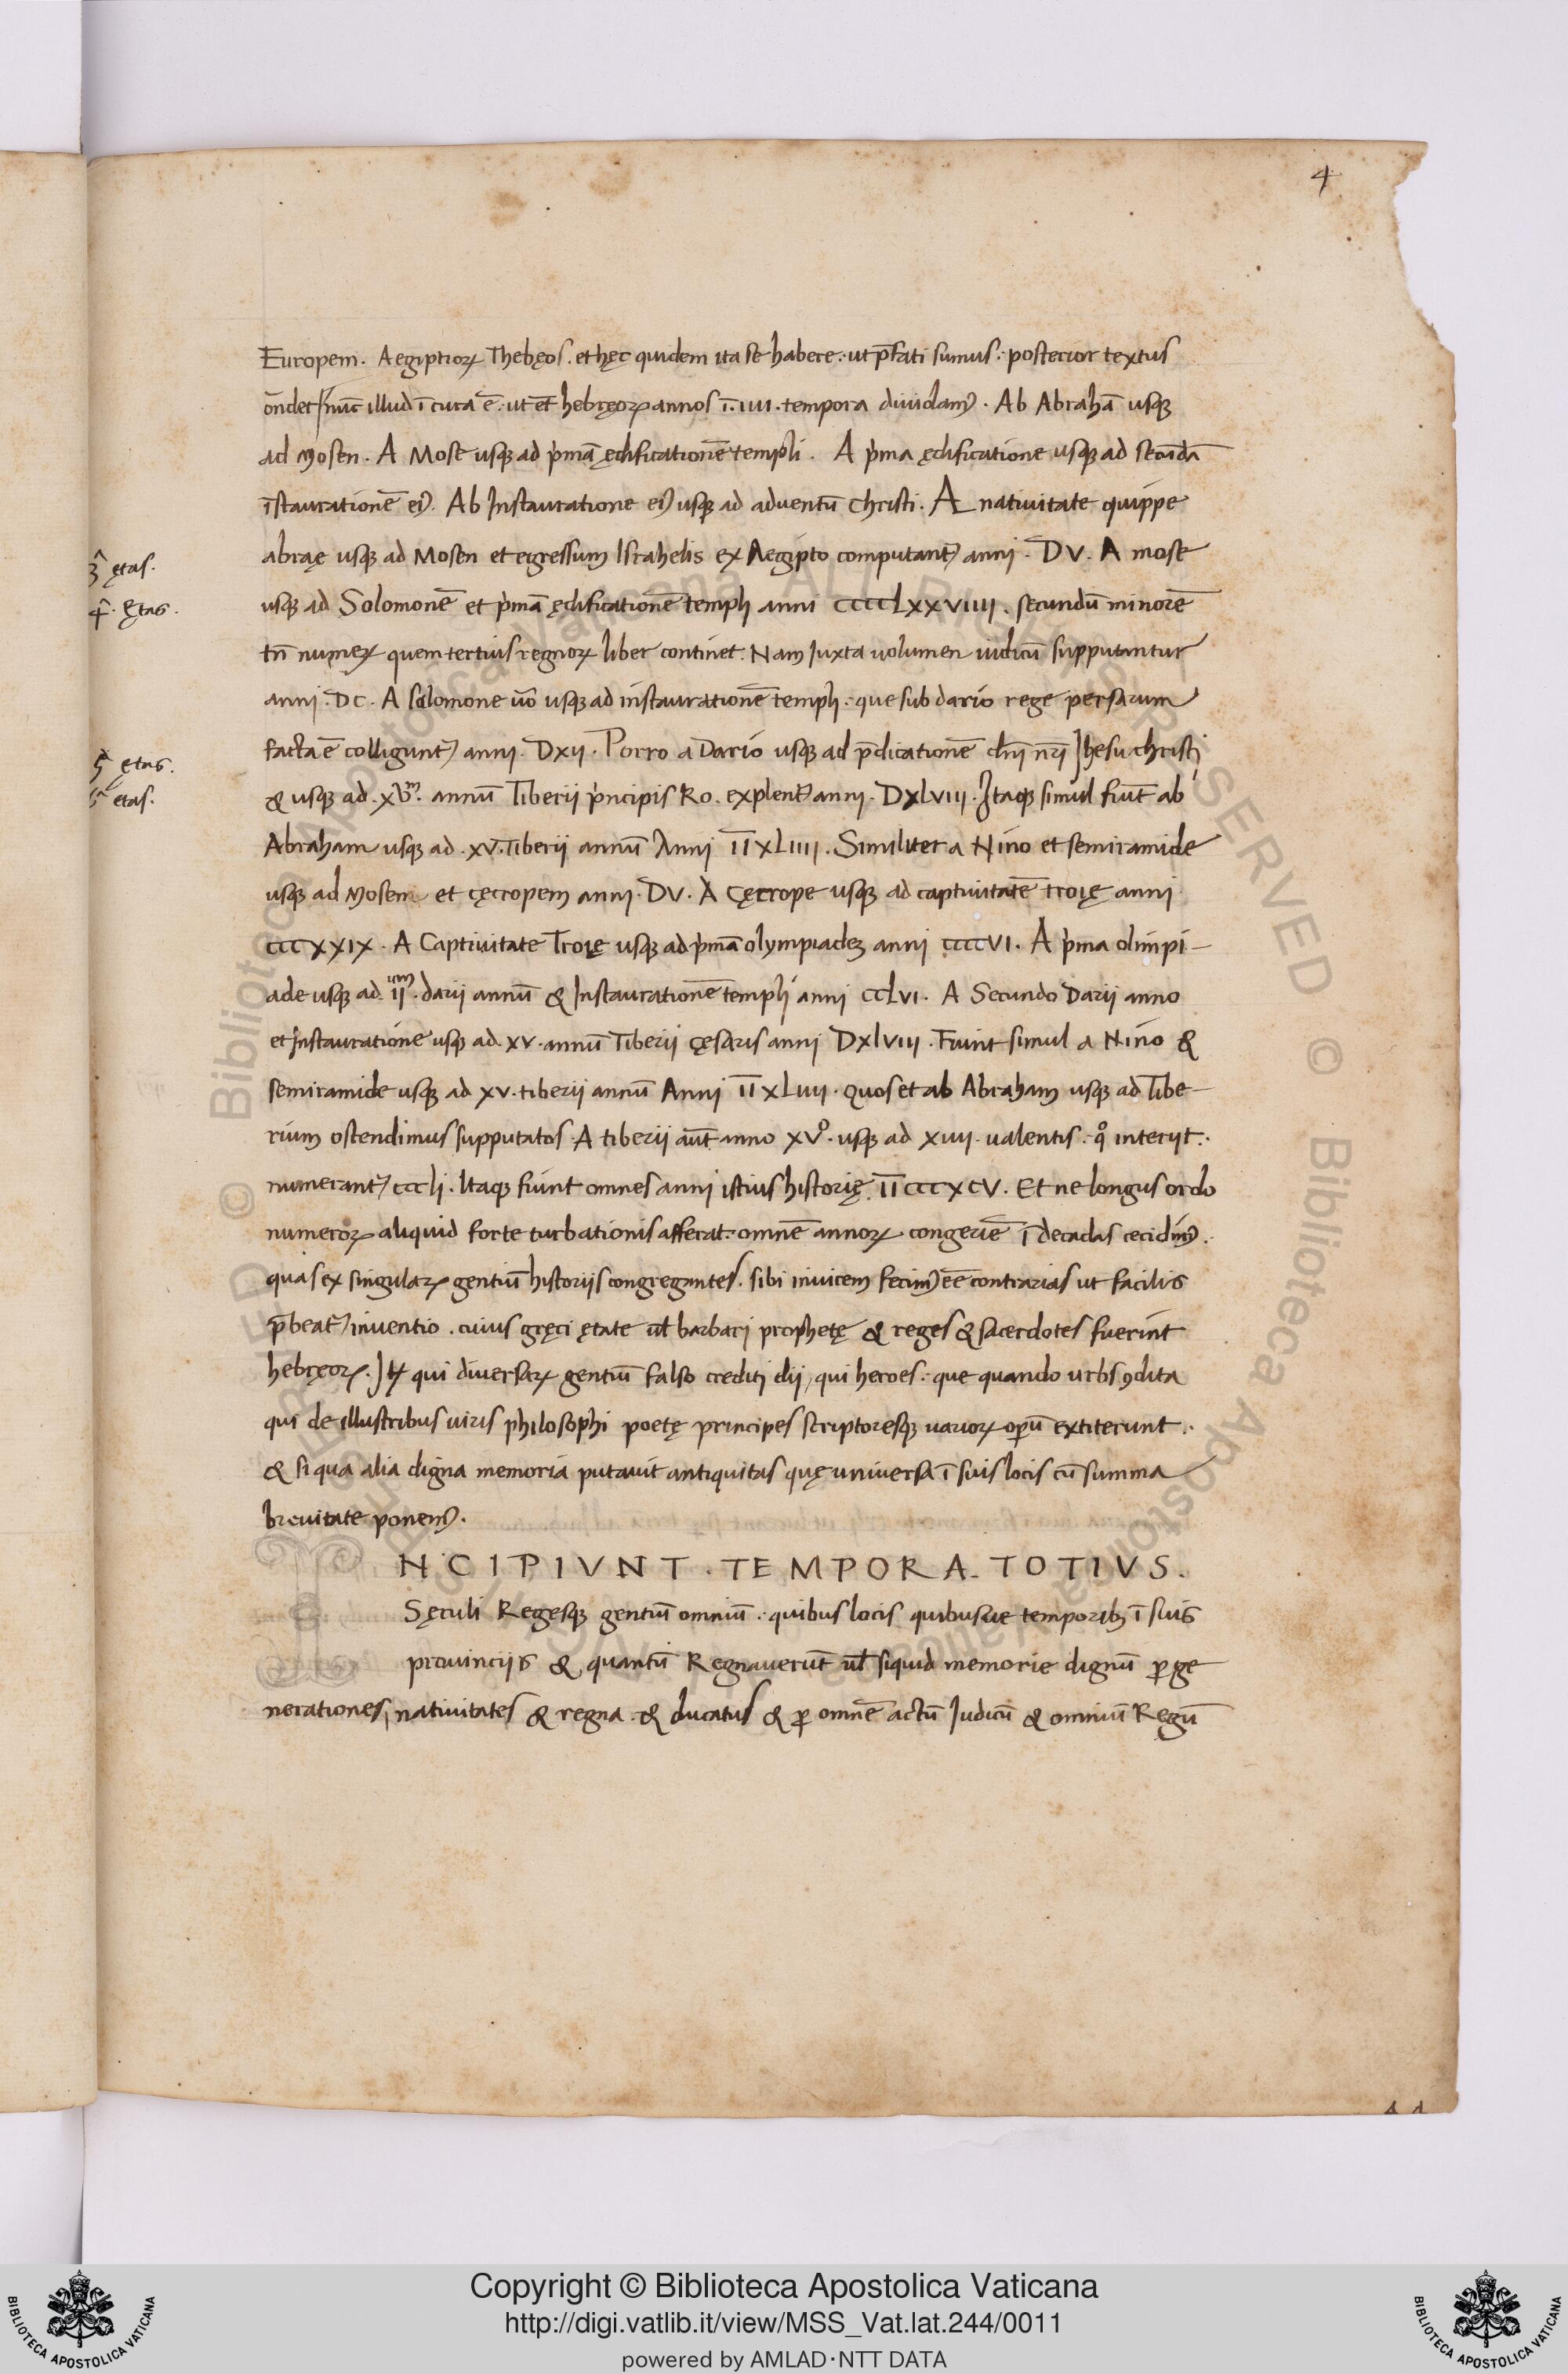 4
Europem. Aegiptioꝝ Thebęos. et hęc quidem ita se habere: ut p̄fati sumus: posterior textus
on̄det / nūc illud ī cura ē: ut et hebręoꝝ annos ī. IIII. tempora diuidamꝰ. Ab Abrahā usqꝫ
ad Mosen. A Mose usqꝫ ad p̓mā ędificationē templi. A p̓ma ędificatione usqꝫ ad secūdā
īstaurationē eiꝰ. Ab Instauratione eiꝰ usqꝫ ad aduentū Christi. A natiuitate quippe
abraę usqꝫ ad Mosen et egressum Israhelis ex Aegipto computant᷑ anni. DV. A mose
3ᵃ ętas.
4ᵃ. Ętas.
usqꝫ ad Solomonē et p̓mā ędificationē templi anni CCCCLXXVIIII. secundū minorē
tn̄ numeꝝ quem tertius regnoꝝ liber continet. Nam Iuxta uolumen iudicū supputantur
anni. DC. A Solomone uō usqꝫ ad instaurationē templi: que sub dario rege persarum
facta ē colligunt᷑ anni. DXII. Porro a Dario usqꝫ ad p̄dicationē dn̄i nr̄i Ihesu christi
5ᵃ ętas.
etas.
& usqꝫ ad. XVᵐ. annū Tiberii p̓ncipis Ro. explent᷑ anni. DXLVIII. Itaqꝫ simul fiūt ab
Abraham usqꝫ ad. XV. Tiberii annū Anni I̅I̅XLIIII. Similiter a Nino et semiramide
usqꝫ ad Mosem et cęcropem anni. DV. A Cęcrope usqꝫ ad captiuitatē troię anni
CCCXXIX. A Captiuitate Troię usqꝫ ad p̓mā olympiadem anni CCCCVI. A p̓ma olimpi-
ade usqꝫ ad IIᵘᵐ. darii annū & Instaurationē templi anni CCLVI. A Secundo Darii anno
et Instauratione usqꝫ ad. XV. annū Tiberii cęsaris anni DXLVIII. Fiunt simul a Nino &
semiramide usqꝫ ad XV. tiberii annū Anni I̅I̅XLIIII. Quos et ab Abraham usqꝫ ad Tibe-
rium ostendimus supputatos. A tiberii aūt anno XVº. usqꝫ ad XIIII. ualentis. qº interiit:
numerant᷑ CCCLI. Itaqꝫ fiunt omnes anni istius historię I̅I̅CCCXCV. Et ne longus ordo
numeroꝝ aliquid forte turbationis afferat: omnē annoꝝ congeriē ī decadas cecidimꝰ:
quas ex singulaꝝ gentiū historiis congregantes. sibi inuicem fecimꝰ eē contrarias ut facilis
p̄beat᷑ inuentio. cuius gręci ętate ul̄ barbari prophetę & reges & sacerdotes fuerint
hebręoꝝ. Itꝫ qui diuersaꝝ gentiū falso crediti dii, qui heroes: que quando urbs ꝯdita
qui de illustribus uiris philosophi poetę principes scriptoresqꝫ uarioꝝ opū extiterunt:
& si qua alia digna memoria putauit antiquitas quę uniuersa ī suis locis cū summa
breuitate ponemꝰ.
NCIPIVNT. TEMPORA. TOTIVS.
Sęculi Regesqꝫ gentiū omniū: quibus locis quibusue temporibꝫ ī suis
prouinciis & quantū Regnauerūt ul̄ siquid memorie dignū ꝑ ge
nerationes, natiuitates & regna & ducatus & ꝑ omnē actū Iudicū & omniū Regū
Copyright © Biblioteca Apostolica Vaticana
http://digi.vatlib.it/view/MSS_Vat.lat.244/0011
powered by AMLAD·NTT DATA
BIBLIOTECA APOSTOLICA VATICANA
BIBLIOTECA APOSTOLICA VATICANA